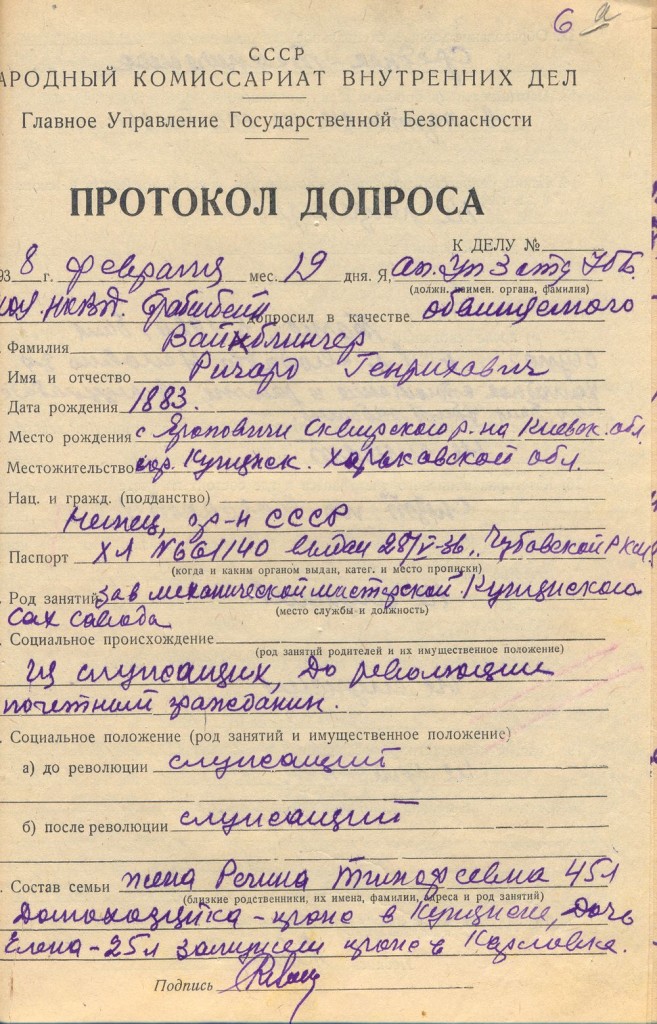 6 а
СССР
АРОДНЫЙ КОМИССАРИАТ ВНУТРЕННИХ ДЕЛ
Главное Управление Государственной Безопасности
ПРОТОКОЛ ДОПРОСА
К ДЕЛУ №
938 г. февраля мес. 19 дня. Я, оп. Уп 3 отд УГБ
(должн. наимен. органа, фамилия)
НКВД допросил в качестве обвиняемого
Фамилия Вайнблингер
Имя и отчество Ричард Генрихович
Дата рождения 1883.
Место рождения с Яроповичи Сквирского р-на Киевск. обл
Местожительство гор. Купянск. Харьковской обл.
Нац. и гражд. (подданство)
Немец, гр-н СССР
Паспорт ХЛ №661140 выдан 28/V-36
(когда и каким органом выдан, катег. и место прописки)
Род занятий зав механической мастерской Купянского
(место службы и должность)
Сах завода
Социальное происхождение
(род занятий родителей и их имущественное положение)
Из служащих, До революции
почетный гражданин.
Социальное положение (род занятий и имущественное положение)
а) до революции служащий
б) после революции служащий
Состав семьи жена Регина 45 л
(близкие родственники, их имена, фамилии, адреса и род занятий)
Домохозяйка - прож в Купянске, Дочь
Елена - 25 л замужем прож в Карловка.
Подпись